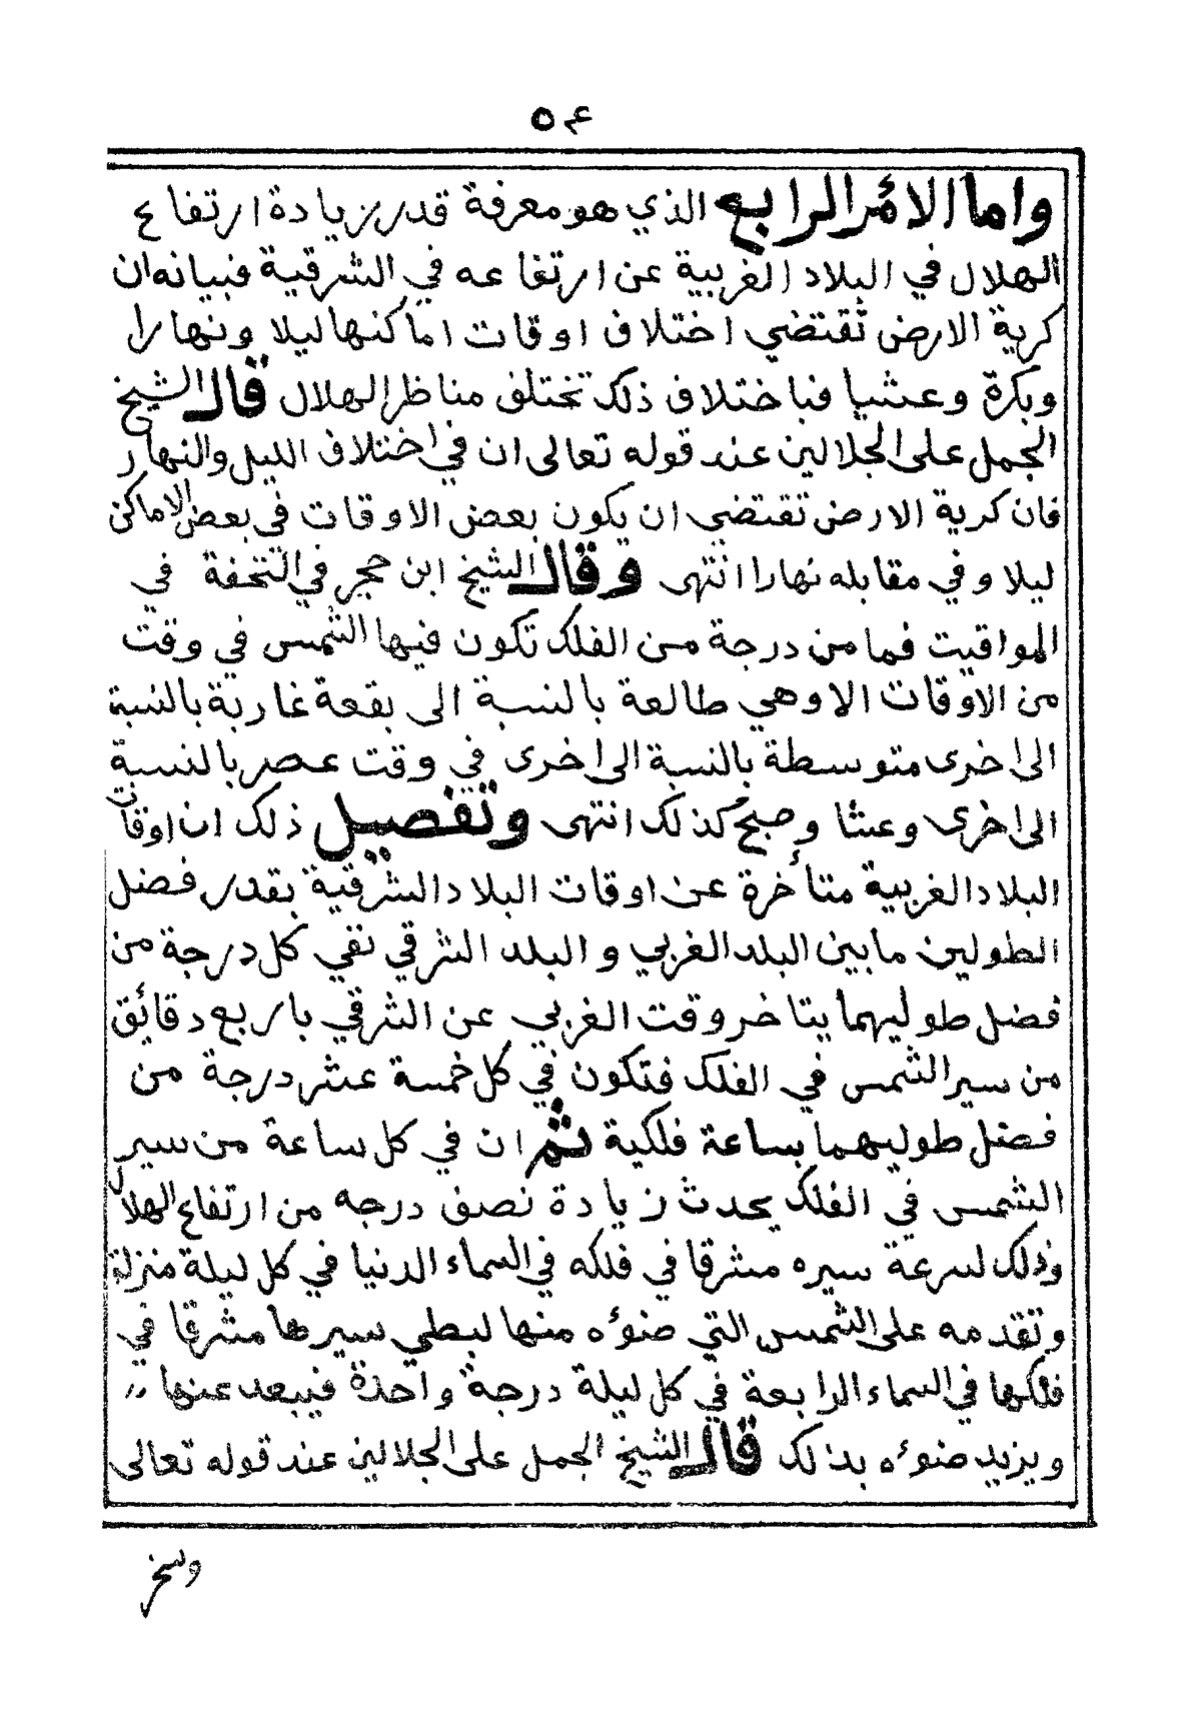 ٥٤
واما الأمر الرابع الذي هو معرفة قدر زيادة ارتفاع
الهلال في البلاد الغربية عن ارتفاعه في الشرقية فبيانه ان
كرية الارض تقتضي اختلاف اوقات اماكنها ليلا ونهارا
وبكرة وعشيا فباختلاف ذلك تختلف مناظر الهلال قال الشيخ
الجمل على الجلالين عند قوله تعالى ان في اختلاف الليل والنهار
فان كرية الارض تقتضي ان يكون بعض الاوقات في بعض الاماكن
ليلا وفي مقابله نهارا انتهى وقال الشيخ ابن حجر في التحفة في
المواقيت فما من درجة من الفلك تكون فيها الشمس في وقت
من الاوقات الا وهي طالعة بالنسبة الى بقعة غاربة بالنسبة
الى اخرى متوسطة بالنسبة الى اخرى في وقت عصر بالنسبة
الى اخرى وعشا وصبح كذلك انتهى وتفصيل ذلك ان اوقات
البلاد الغربية متأخرة عن اوقات البلاد الشرقية بقدر فضل
الطولين ما بين البلد الغربي والبلد الشرقي نفي كل درجة من
فضل طوليهما يتاخر وقت الغربي عن الشرقي باربع دقائق
من سير الشمس في الفلك فتكون في كل خمسة عشر درجة من
فضل طوليهما بساعة فلكية ثم ان في كل ساعة من سير
الشمس في الفلك يحدث زيادة نصف درجه من ارتفاع الهلال
وذلك لسرعة سيره مشرقا في فلكه في السماء الدنيا في كل ليلة منزلة
وتقدمه على الشمس التي ضوٴه منها لبطي سيرها مشرقا في
فلكها في السماء الرابعة في كل ليلة درجة واحدة فيبعد عنها
ويزيد ضوٴه بذلك قال الشيخ الجمل على الجلالين عند قوله تعالى
وسخر